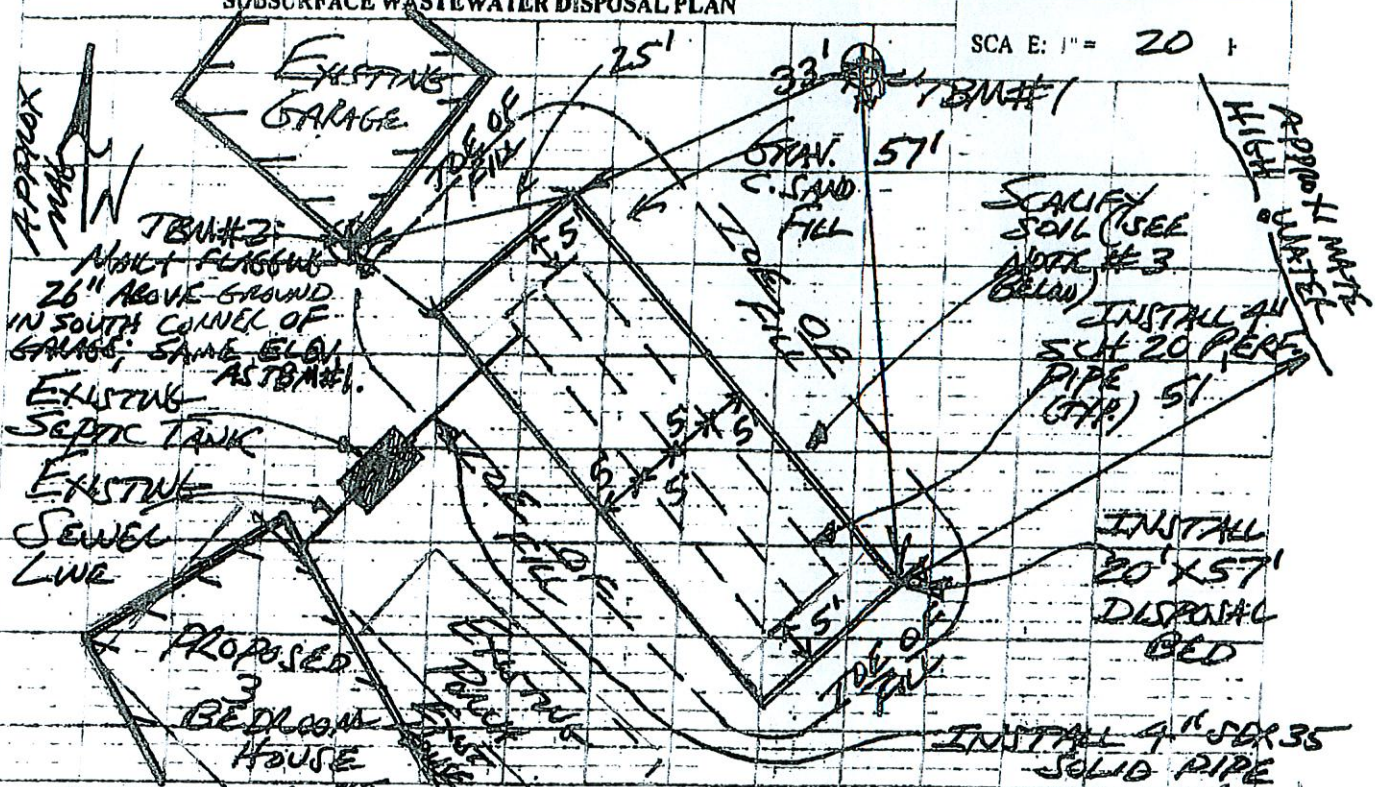 SUBSURFACE WASTEWATER DISPOSAL PLAN
SCA E: 1" = 20
EXISTING
GARAGE
25'
33'
TBM#1
APPROX
MAG
N
TOE OF
FILL
GRAV.
C. SAND
FILL
57'
APPROXIMATE
HIGH WATER
SCARIFY
SOIL (SEE
NOTE #3
BELOW)
TBM#2
NAIL + FLAGGING
26" ABOVE-GROUND
IN SOUTH CORNER OF
GARAGE; SAME ELEV.
AS TBM#1.
5'
TOE OF
FILL
INSTALL 4"
SCH 20 PERF.
PIPE
(TYP.)
51'
EXISTING
SEPTIC TANK
5
5
5
5
EXISTING
SEWER
LINE
TOE OF
FILL
INSTALL
20' X 57'
DISPOSAL
BED
5'
TOE OF
FILL
PROPOSED
BEDROOM
HOUSE
EXISTING
INSTALL 4" SDR 35
SOLID PIPE